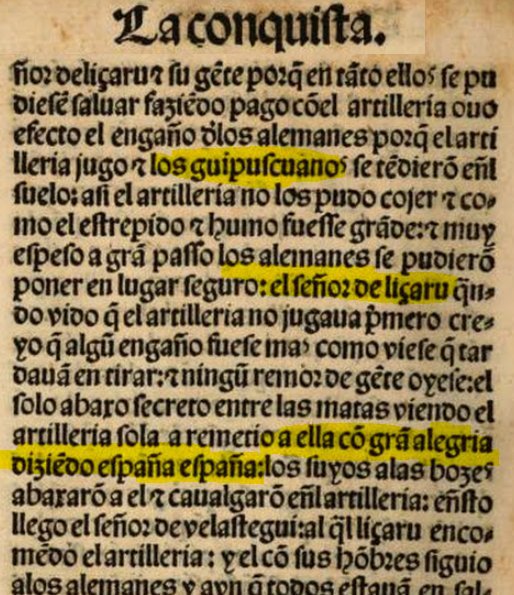 La conquista.
ñor deliçaru ⁊ su gẽte porq̃ en tãto ellos se pu
diesẽ saluar faziẽdo pago cõel artilleria ouo
efecto el engaño d̓los alemanes porq̃ el arti
lleria jugo ⁊ los guipuscuanos se tẽdierõ eñl
suelo: asi el artilleria no los pudo cojer ⁊ co-
mo el estrepido ⁊ humo fuesse grãde: ⁊ muy
espeso a grã passo los alemanes se pudierõ
poner en lugar seguro: el señor de liçaru q̃n-
do vido q̃ el artilleria no jugaua p̃mero cre-
yo q̃ algũ engaño fuese mas como viese q̃ tar
dauã en tirar: ⁊ ningũ remor de gẽte oyese: el
solo abaxo secreto entre las matas viendo el
artilleria sola a remetio a ella cõ grã alegria
diziẽdo españa españa: los suyos alas bozes
abaxarõ a el ⁊ caualgarõ eñl artilleria: eñsto
llego el señor de velastegui: al q̃l liçaru enco-
mẽdo el artilleria: y el cõ sus hõbres siguio
alos alemanes y avn q̃ todos estauã en sal-